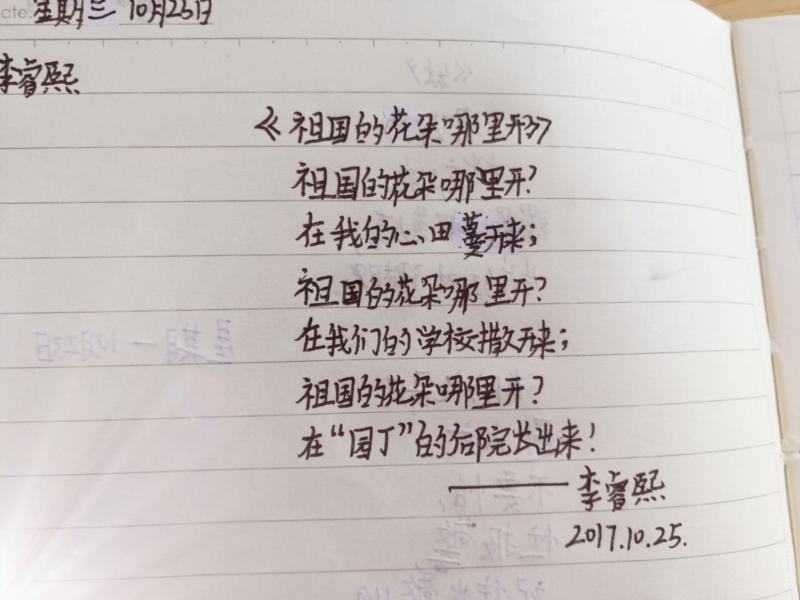 ate:
星期三 10月25日
李睿熙
《祖国的花朵哪里开》
祖国的花朵哪里开?
在我的心田蔓开来;
祖国的花朵哪里开?
在我们的学校撒开来;
祖国的花朵哪里开?
在“园丁”的后院发出来!
——李睿熙
2017.10.25.